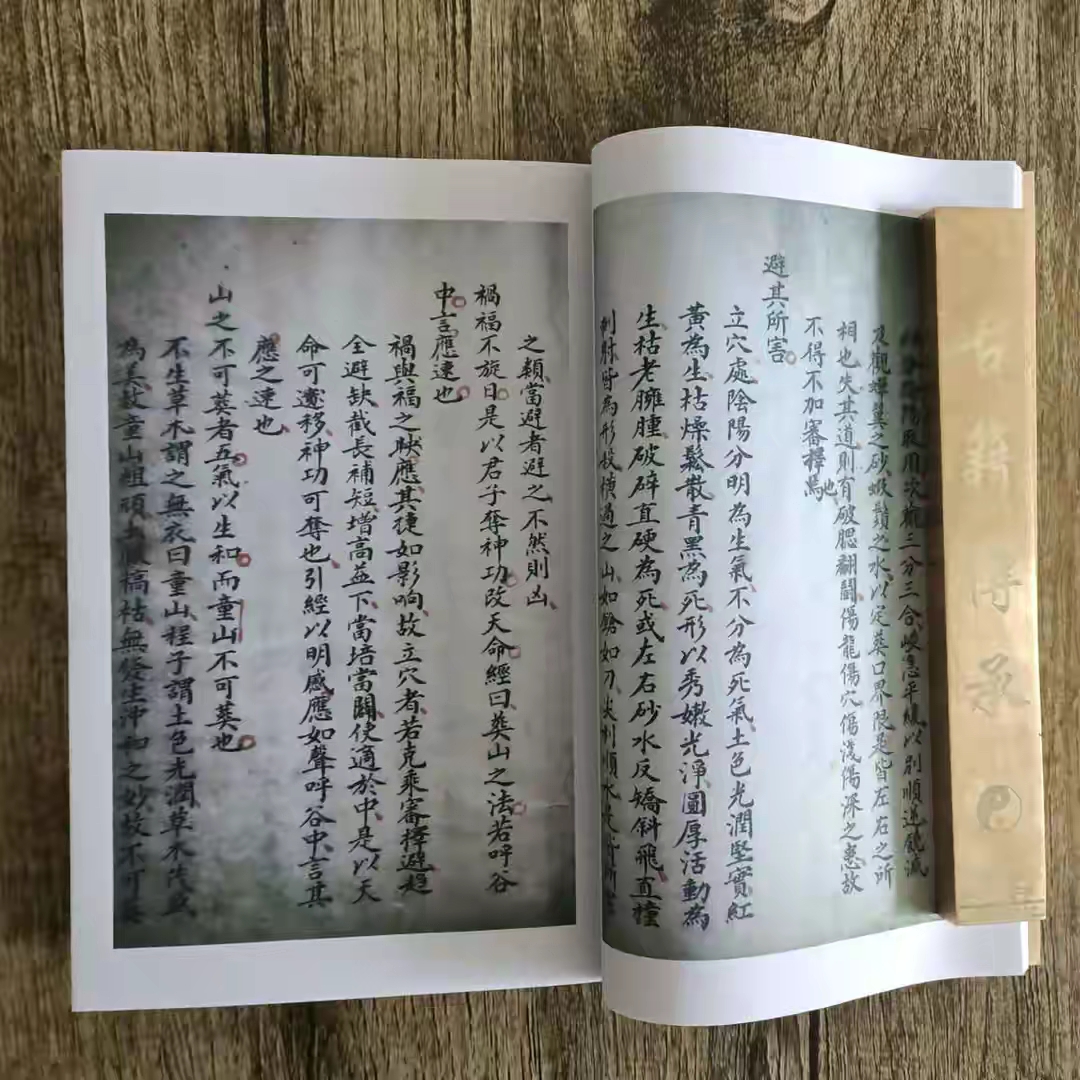 陽取用次觀三分三合峻急平緩以别順逆饒減
及觀蟬翼之砂蝦鬚之水以定葵口界限是皆左右之所
相也失其道則有破腮翻鬪傷龍傷穴傷淺傷深之患故
不得不加審擇焉也
避其所害
立穴處陰陽分明為生氣不分為死氣土色光潤堅實紅
黃為生枯燥鬆散青黑為死形以秀嫩光淨圓厚活動為
生枯老臃腫破碎直硬為死或左右砂水反矯斜飛直撞
刺射皆為形投橫過之山如鎗如刀尖利順水是皆所
之類當避者避之不然則凶
禍福不旋日是以君子奪神功改天命經曰葵山之法若呼谷
中言應速也
禍與福之映應其捷如影响故立穴者若克乘審擇避趨
全避缺截長補短增高益下當培當闢使適於中是以天
命可遷移神功可奪也引經以明感應如聲呼谷中言其
應之速也
山之不可葵者五氣以生和而童山不可葵也
不生草木謂之無衣曰童山程子謂土色光潤草木茂盛
為美故童山粗頑土脈槁枯無發生沖和之妙故不可
古籍傳承